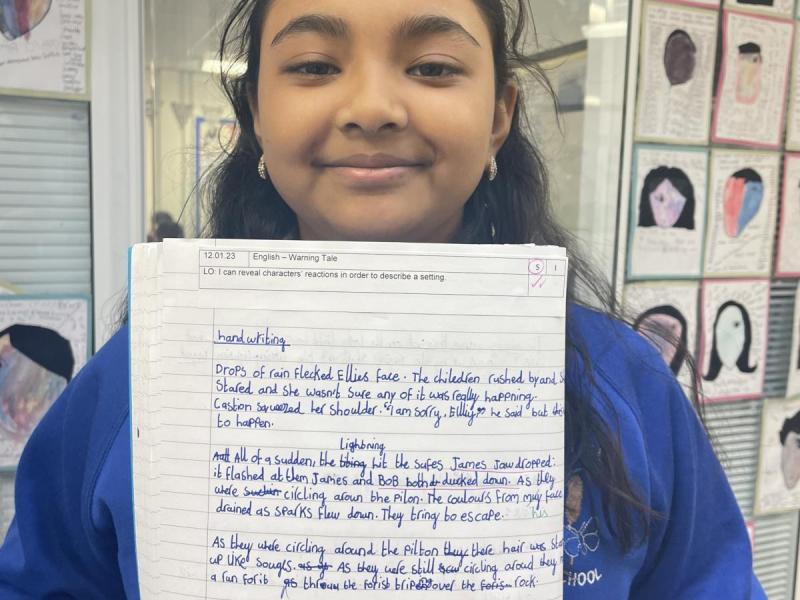 12.01.23 English – Warning Tale S 1
LO: I can reveal characters' reactions in order to describe a setting.
handwriting
Drops of rain flecked Ellies face. The chiledren rushed by and
Stared and she wasn't sure any of it was really happning.
Castion squeezed her shoulder. "I am sorry, Elliy" he said but
to happen.
Lightning
All of a sudden, the hit the safes James Jaw dropped:
it flashed at them James and BoB both ducked down. As they
were circling aroun the Pilon. The coulours from my face
drained as sparks flew down. They tring to escape. his
As they were circling around the Pilton there hair was
up like As they were still circling around they
a run forit as the forist over the rock.
SCHOOL